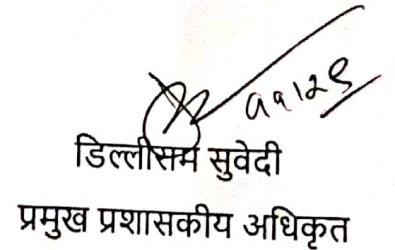 ११।२९
डिल्लीराम सुवेदी
प्रमुख प्रशासकीय अधिकृत